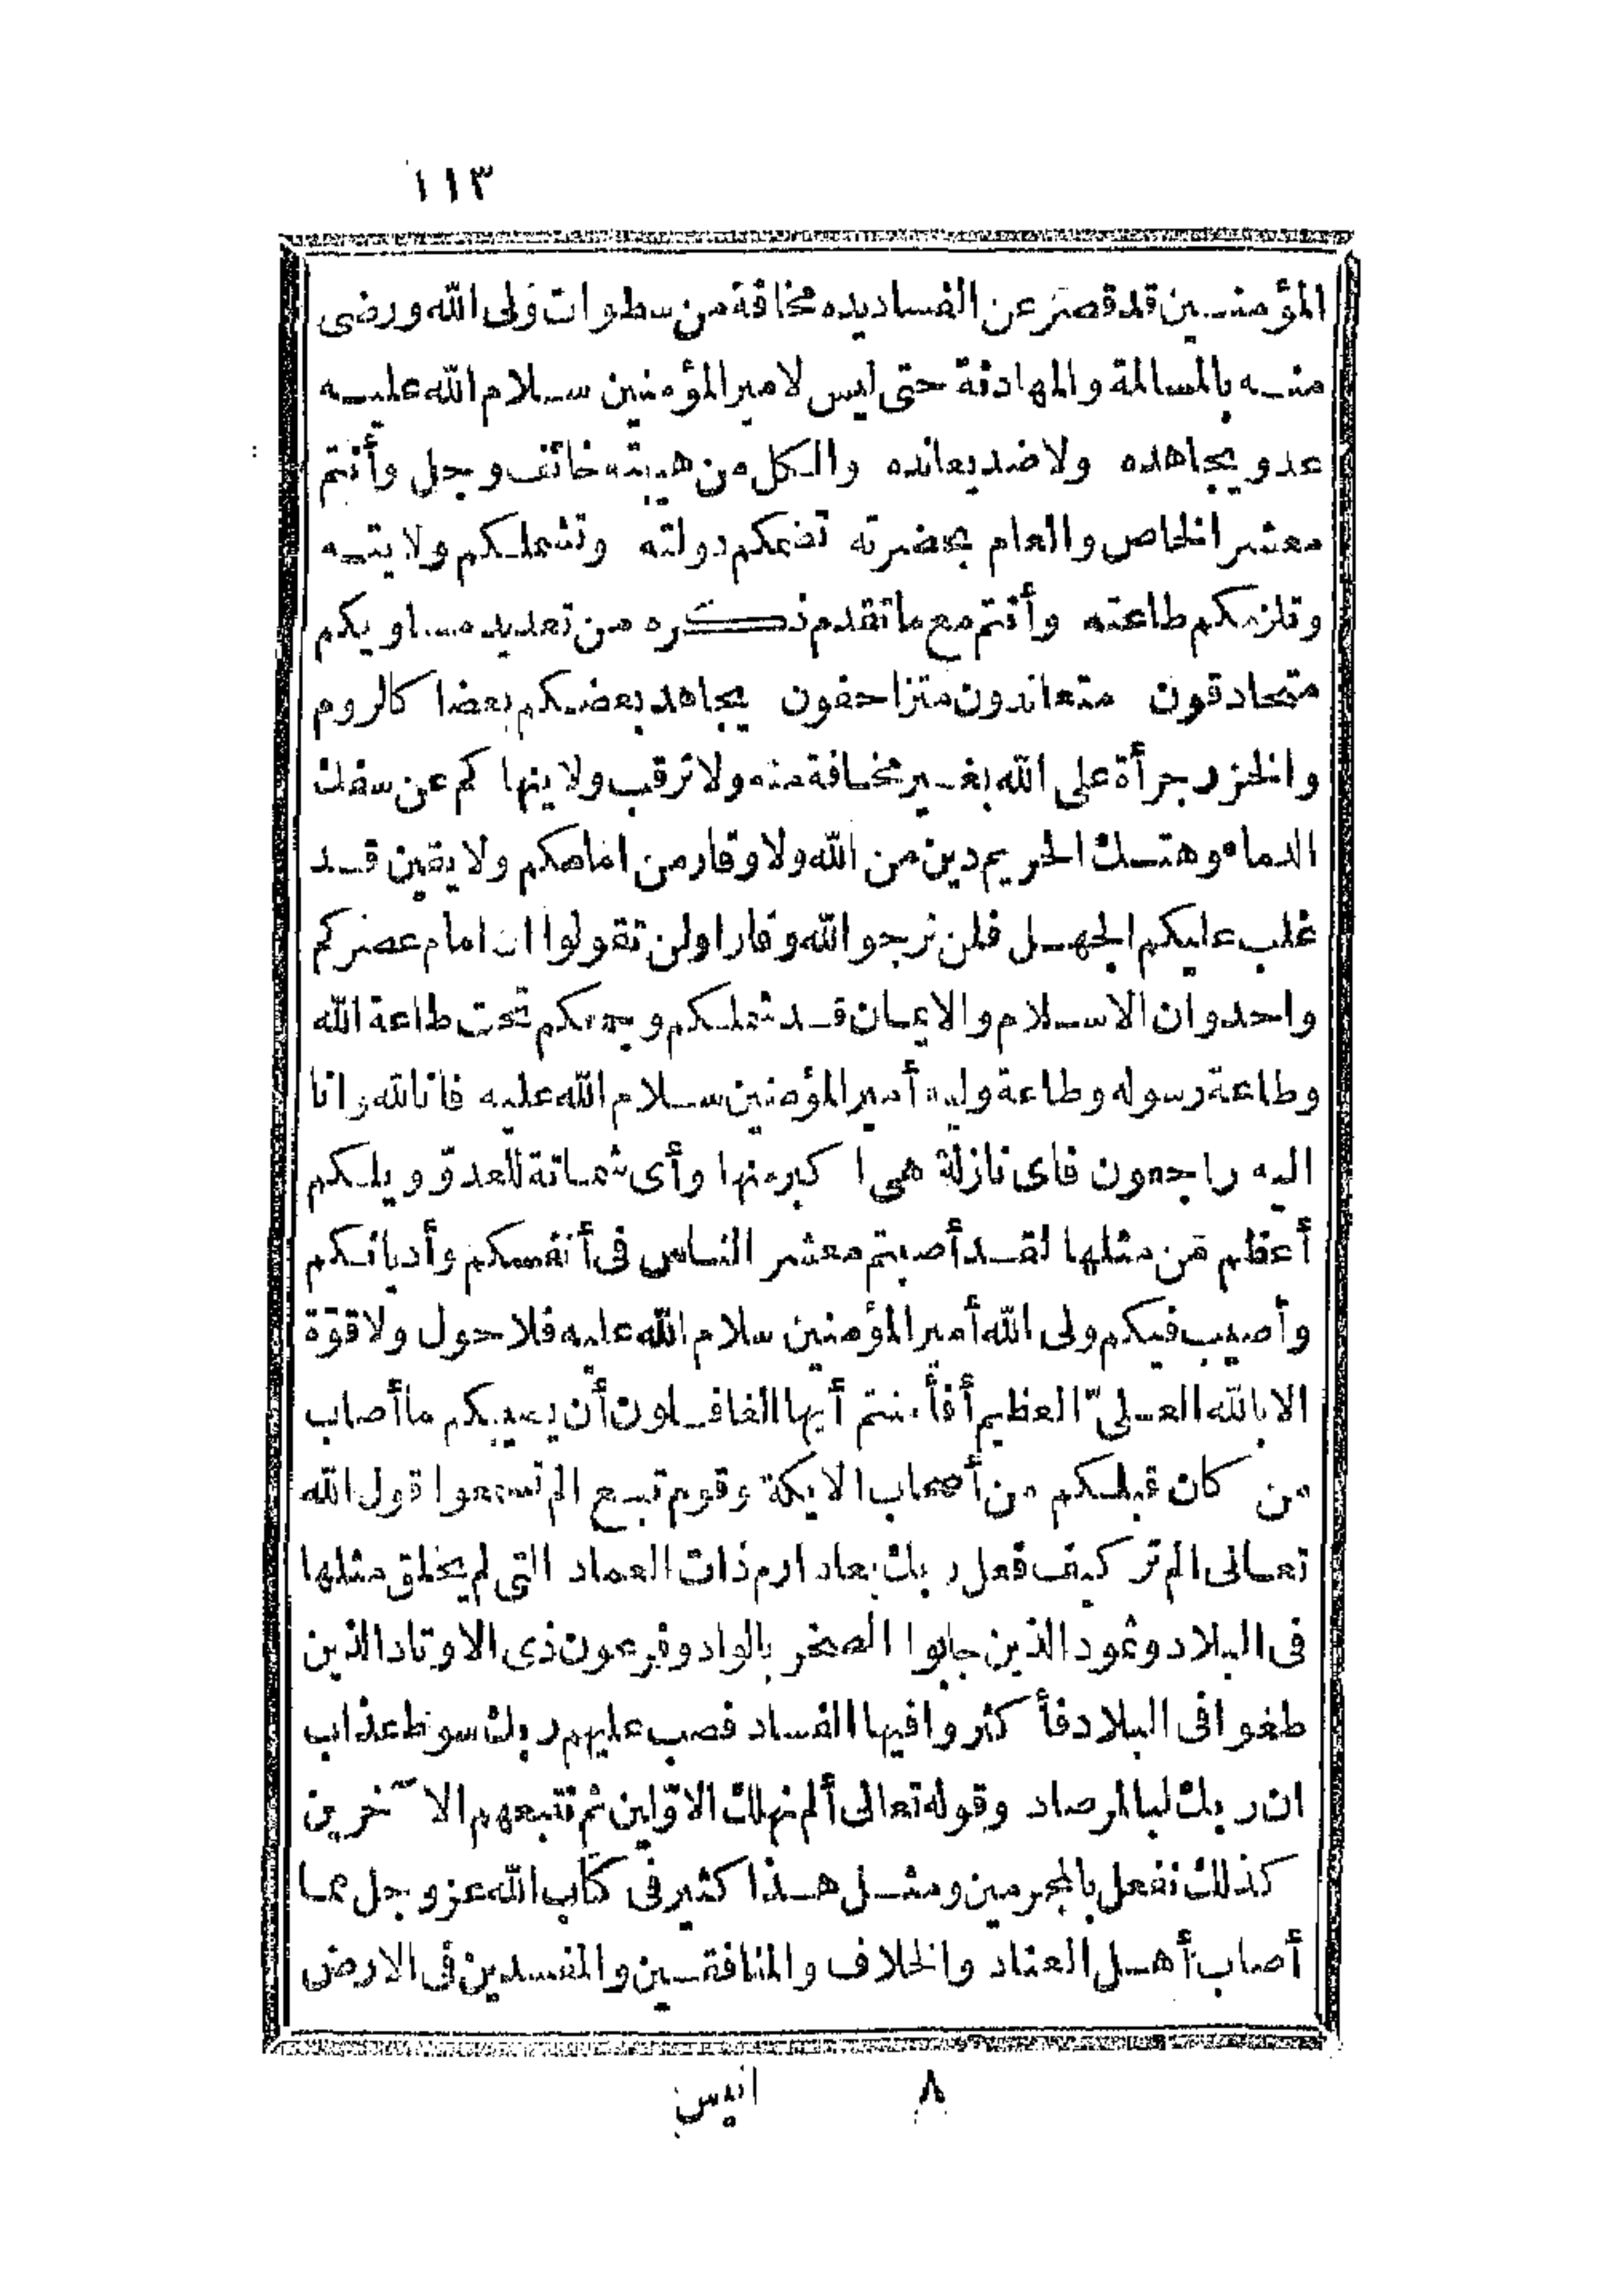 ١١٣
المؤمنين قد قصر عن الفساد يده مخافة من سطوات ولى الله ورضى
منه بالمسالمة والمهادنة حتى ليس لامير المؤمنين سلام الله عليه
عدو يجاهده ولا ضد يعانده والكل من هيبته خائف وجل وأنتم
معشر الخاص والعام بحضرته تضمكم دولته وتشملكم ولايته
وتلزمكم طاعته وأنتم مع ما تقدم ذكره من تعديد مساويكم
متحادقون متعاندون متزاحفون يجاهد بعضكم بعضا كالروم
والخزر جرأة على الله بغير مخافة منه ولا ترقب ولا ينهاكم عن سفك
الدماء وهتك الحريم دين من الله ولا وقار من امامكم ولا يقين قد
غلب عليكم الجهل فلن ترجو الله وقارا ولن تقولوا ان امام عصركم
واحد وان الاسلام والايمان قد شملكم وجمعكم تحت طاعة الله
وطاعة رسوله وطاعة وليه أمير المؤمنين سلام الله عليه فانا لله وانا
اليه راجعون فاى نازلة هى اكبر منها وأى شماتة للعدوّ ويلكم
أعظم من مثلها لقد أصبتم معشر الناس فى أنفسكم وأديانكم
وأصيب فيكم ولى الله أمير المؤمنين سلام الله عليه فلا حول ولا قوّة
الا بالله العلىّ العظيم أفأمنتم أيها الغافلون أن يصيبكم ما أصاب
من كان قبلكم من أصحاب الايكة وقوم تبع الم تسمعوا قول الله
تعالى الم تر كيف فعل ربك بعاد ارم ذات العماد التى لم يخلق مثلها
فى البلاد وثمود الذين جابوا الصخر بالواد وفرعون ذى الاوتاد الذين
طغوا فى البلاد فأكثروا فيها الفساد فصب عليهم ربك سوط عذاب
ان ربك لبالمرصاد وقوله تعالى ألم نهلك الاوّلين ثم نتبعهم الآخرين
كذلك نفعل بالمجرمين ومثل هذا كثير فى كتاب الله عز وجل مما
أصاب أهل العناد والخلاف والمنافقين والمفسدين فى الارض
٨ انيس